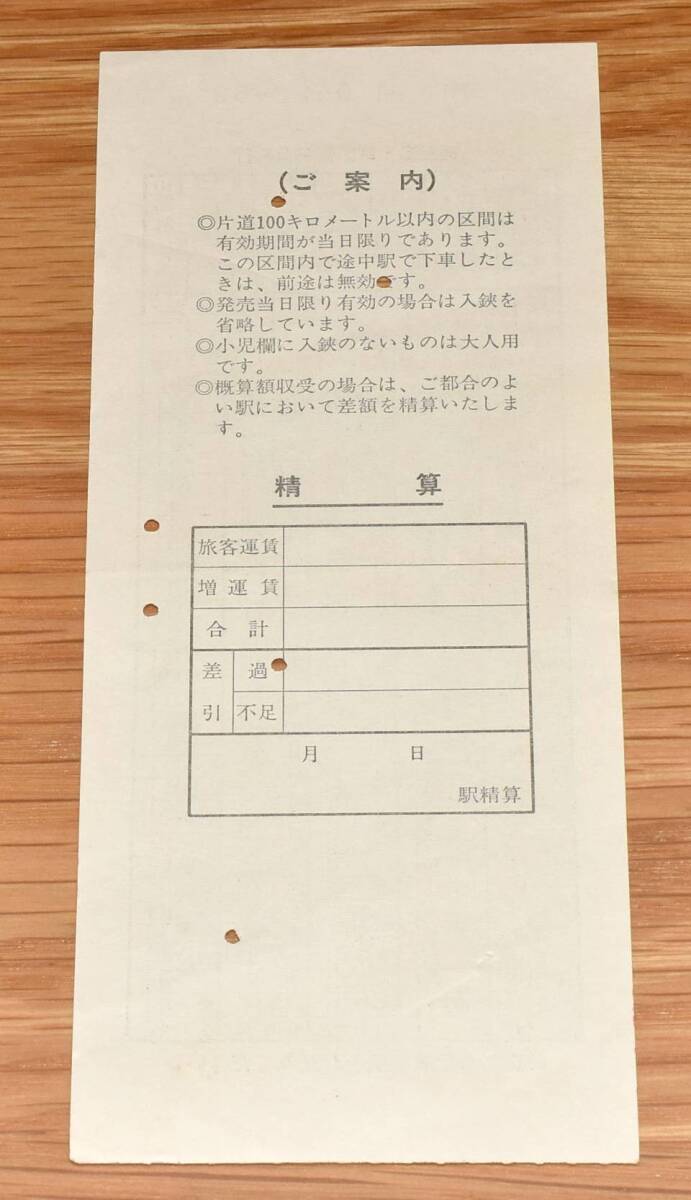 (ご案内)
◎片道100キロメートル以内の区間は
有効期間が当日限りであります。
この区間内で途中駅で下車したと
きは、前途は無効です。
◎発売当日限り有効の場合は入鋏を
省略しています。
◎小児欄に入鋏のないものは大人用
です。
◎概算額収受の場合は、ご都合のよ
い駅において差額を精算いたしま
す。
精算
旅客運賃
増運賃
合計
差引 過
不足
月 日
駅精算